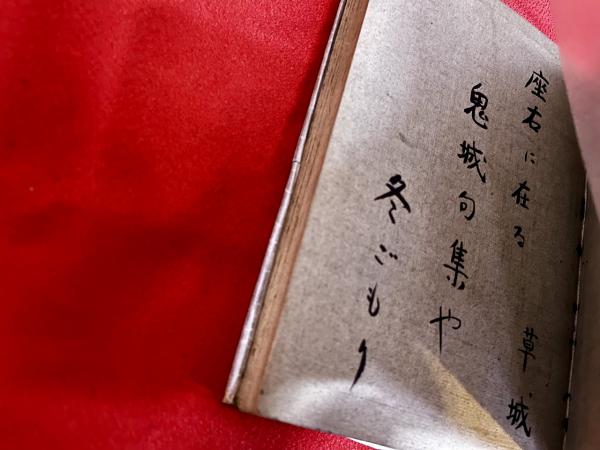 座右に在る
鬼城句集や
冬ごもり
草城